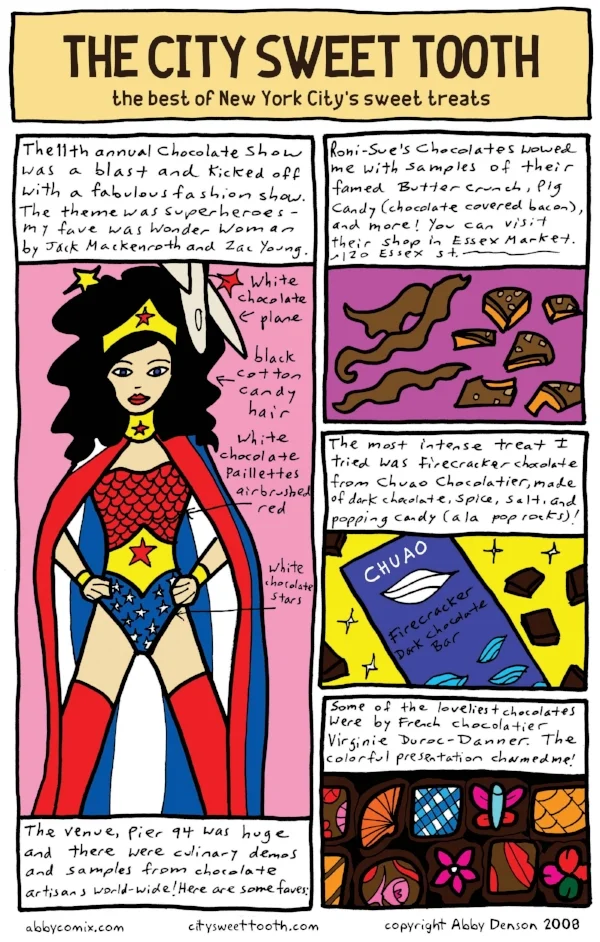 THE CITY SWEET TOOTH
the best of New York City's sweet treats
The 11th annual Chocolate Show
was a blast and kicked off
with a fabulous fashion show.
The theme was superheroes-
my fave was Wonder Woman
by Jack Mackenroth and Zac Young.
White
chocolate
plane
black
cotton
candy
hair
white
chocolate
Paillettes
airbrushed
red
white
chocolate
stars
The venue, Pier 94 was huge
and there were culinary demos
and samples from chocolate
artisans world-wide! Here are some faves:
Roni-Sue's Chocolates wowed
me with samples of their
famed Butter Crunch, Pig
Candy (chocolate covered bacon),
and more! You can visit
their shop in Essex Market.
~120 Essex st.
The most intense treat I
tried was Firecracker chocolate
from Chuao Chocolatier, made
of dark chocolate, spice, salt, and
popping candy (a la pop rocks)!
CHUAO
Firecracker
Dark Chocolate
Bar
Some of the loveliest chocolates
were by French chocolatier
Virginie Duroc-Danner. The
colorful presentation charmed me!
abbycomix.com
citysweettooth.com
copyright Abby Denson 2008